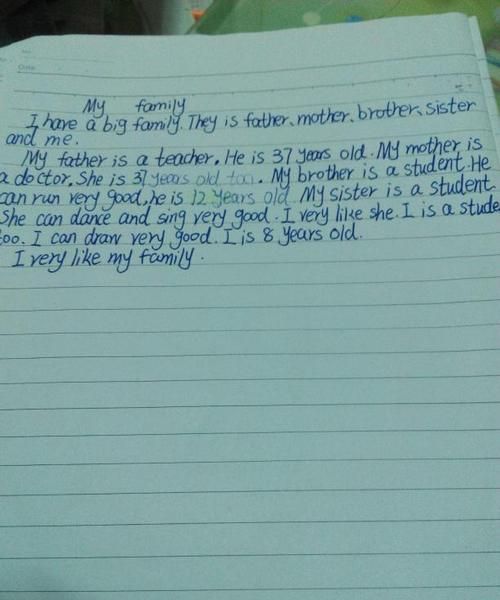 My family
I have a big family. They is father、mother、brother、sister
and me.
My father is a teacher. He is 37 years old. My mother is
a doctor. She is 37 years old too. My brother is a student. He
can run very good, he is 12 years old. My sister is a student
She can dance and sing very good. I very like she. I is a stude
too. I can draw very good. I is 8 years old.
I very like my family.